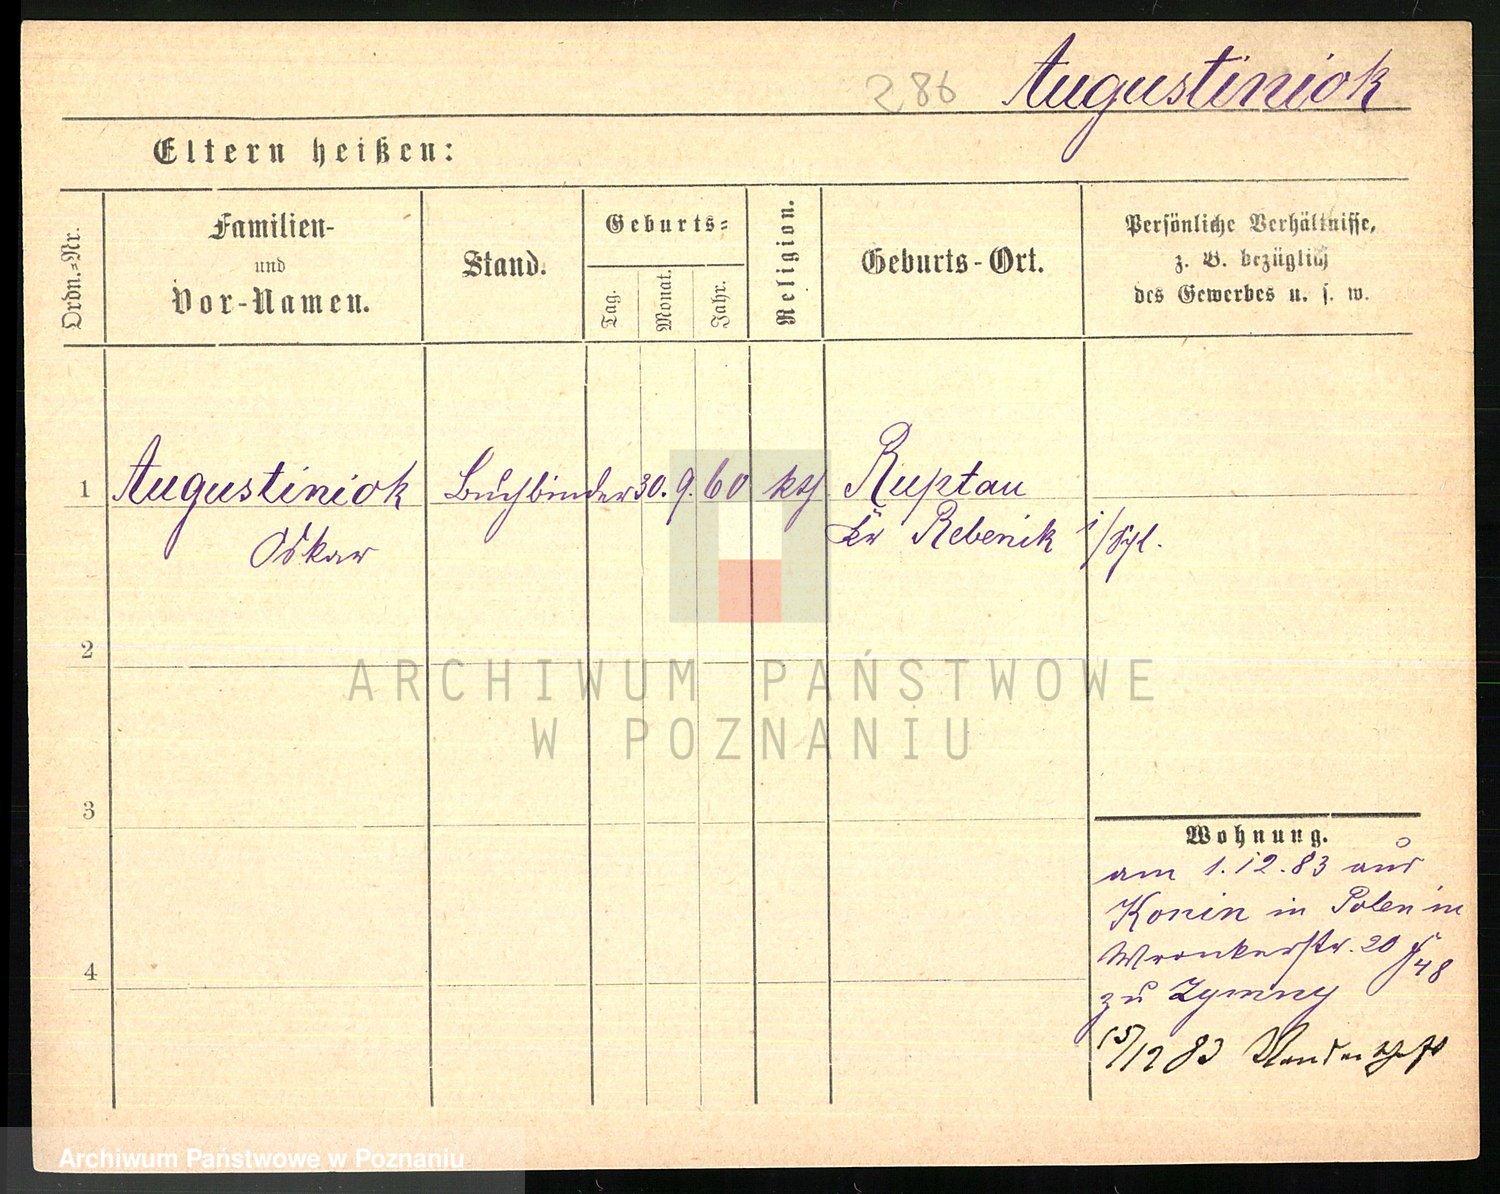 286 Augustiniok
Eltern heißen:
Ordn.-Nr.
Familien-
und
Vor-Namen.
Stand.
Geburts-
Tag.
Monat.
Jahr.
Religion.
Geburts-Ort.
Persönliche Verhältnisse,
z. B. bezüglich
des Gewerbes u. s. w.
1 Augustiniok Buchbinder 30. 9. 60 kth. Ruptau
Oskar Kr Rebenik i/Schl.
2
ARCHIWUM PAŃSTWOWE
W POZNANIU
3
Wohnung.
am 1.12.83 aus
Konin in Polen in
Wronkerstr. 20
4
zu Zymny
15/12 83 Wanderschaft
Archiwum Państwowe w Poznaniu